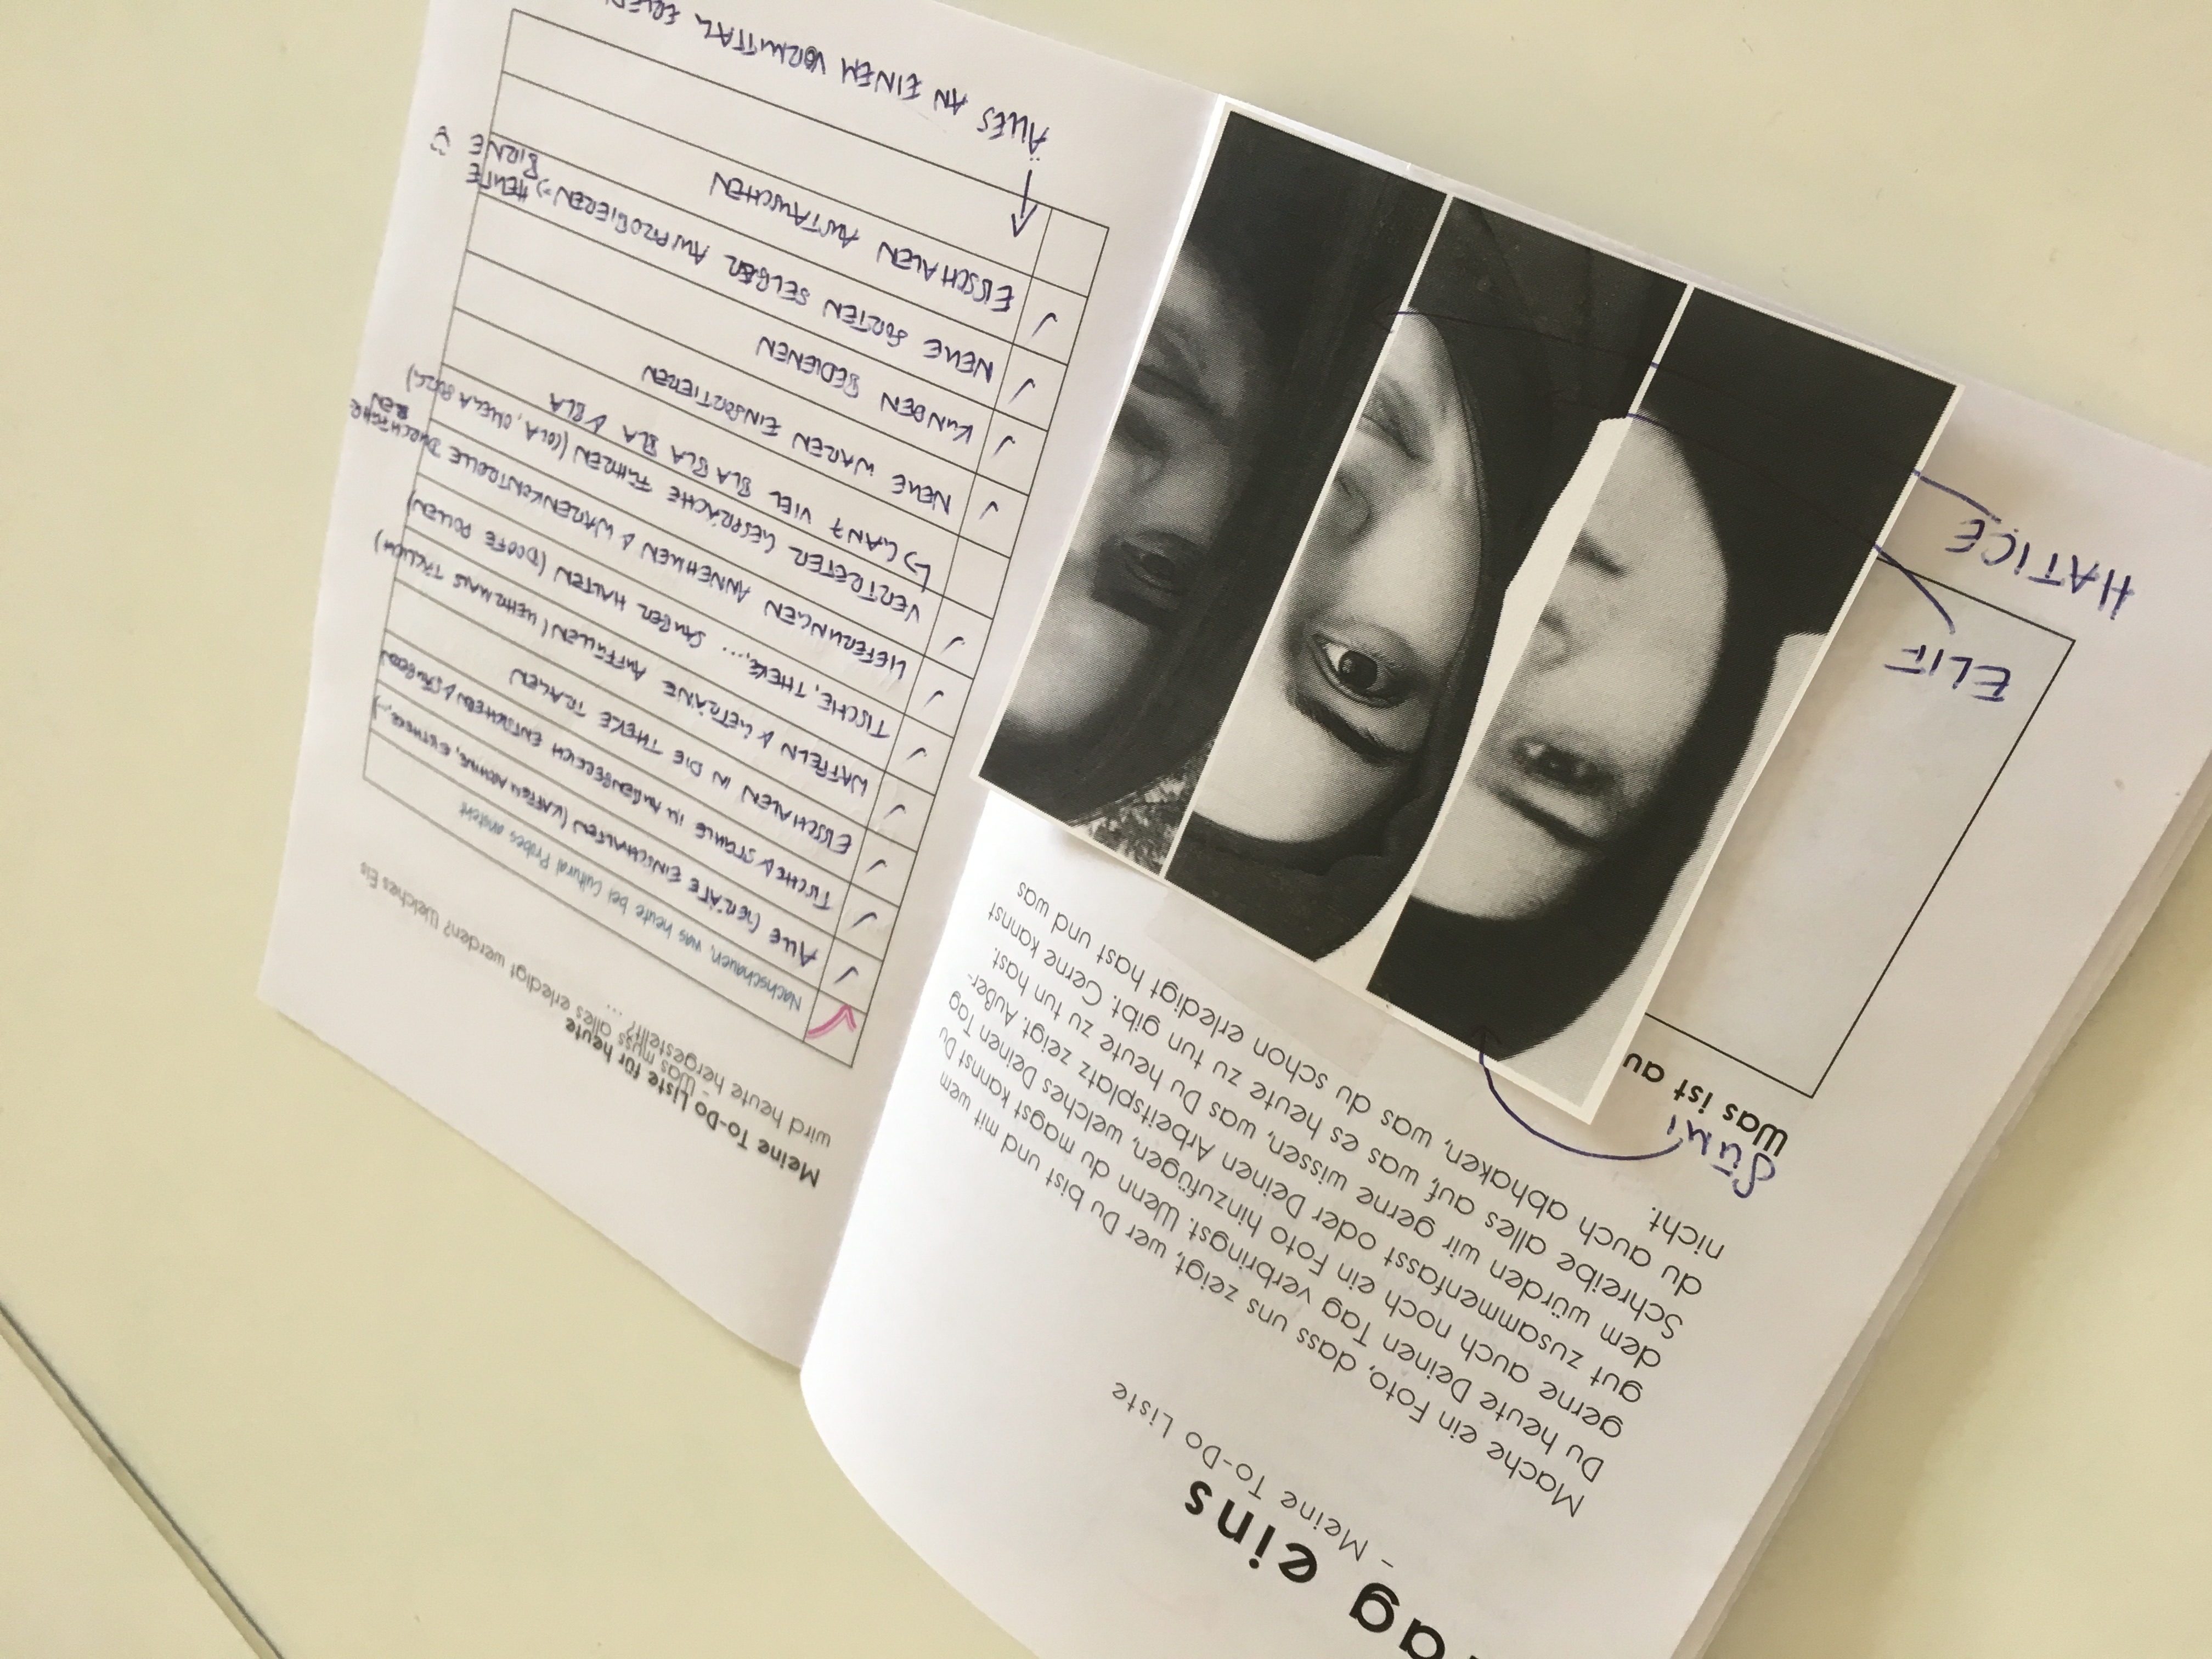 ag eins
- Meine To-Do Liste
Mache ein Foto, dass uns zeigt, wer Du bist und mit wem
Du heute Deinen Tag verbringst. Wenn du magst kannst Du
gerne auch noch ein Foto hinzufügen, welches Deinen Tag
gut zusammenfasst oder Deinen Arbeitsplatz zeigt. Außer-
dem würden wir gerne wissen, was Du heute zu tun hast.
Schreibe alles auf, was es heute zu tun gibt. Gerne kannst
du auch abhaken, was du schon erledigt hast und was
nicht.
SÜMI
Was ist au
ELIF
HATICE
Meine To-Do Liste für heute
- Was muss alles erledigt werden? Welches Eis
wird heute hergestellt? ...
Nachschauen, was heute bei Cultural Probes ansteht
✓ ALLE GERÄTE EINSCHALTEN (KAFFEEMASCHINE, EISTHEKE,...)
✓ TISCHE & STÜHLE IM AUßENBEREICH ENTSICHERN & SÄUBERN
✓ EISSCHALEN IN DIE THEKE TRAGEN
✓ WAFFELN & GETRÄNKE AUFFÜLLEN (MEHRMALS TÄGLICH)
✓ TISCHE, THEKE,... SAUBER HALTEN (DOOFE POLLEN)
✓ LIEFERUNGEN ANNEHMEN & WARENKONTROLLE DURCHFÜHREN
✓ VERTRETER GESPRÄCHE FÜHREN (COLA, OMEGA SORG)
↳ GANZ VIEL BLA BLA BLA & BLA
✓ NEUE WAREN EINSORTIEREN
✓ KUNDEN BEDIENEN
✓ NEUE SORTEN SELBER AUSPROBIEREN => HEUTE BIRNE
✓ EISSCHALEN AUSTAUSCHEN
ALLES AN EINEM VORMITTAG